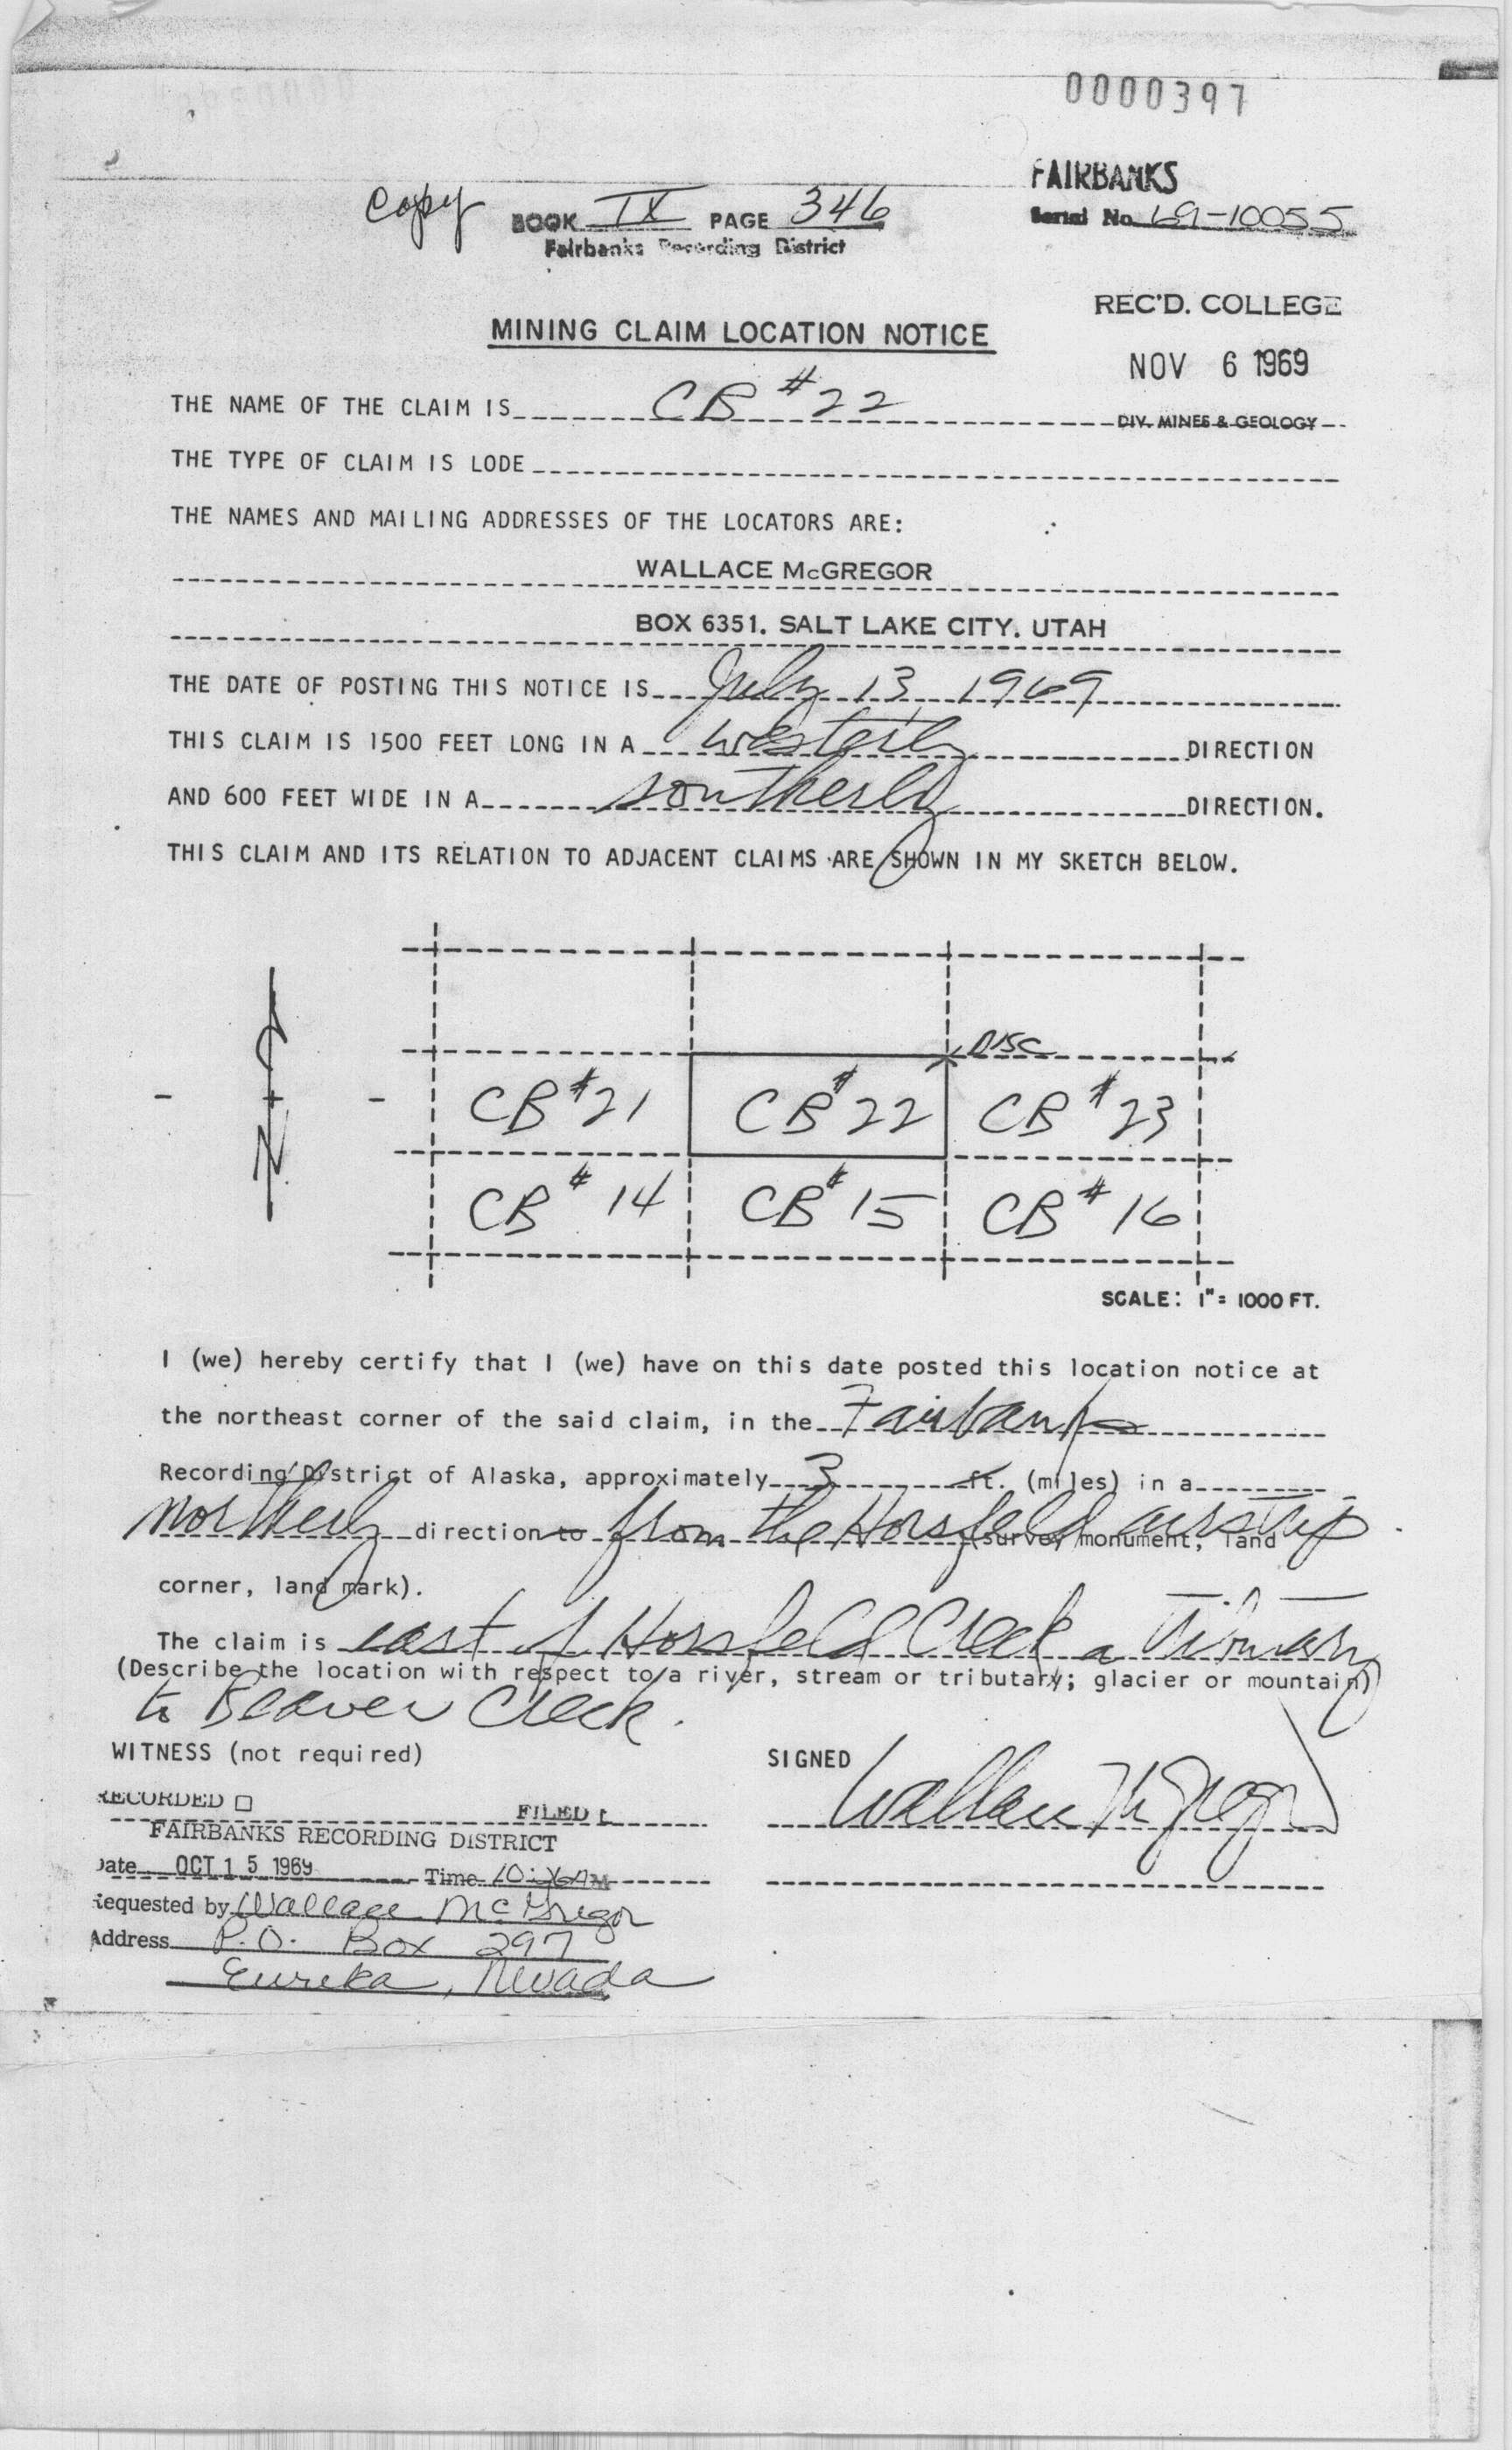 0000397
FAIRBANKS
copy BOOK IX PAGE 346 Serial No. 69-10055
Fairbanks Recording District
REC'D. COLLEGE
MINING CLAIM LOCATION NOTICE
NOV 6 1969
THE NAME OF THE CLAIM IS CB #22
DIV. MINES & GEOLOGY
THE TYPE OF CLAIM IS LODE
THE NAMES AND MAILING ADDRESSES OF THE LOCATORS ARE:
WALLACE McGREGOR
BOX 6351, SALT LAKE CITY, UTAH
THE DATE OF POSTING THIS NOTICE IS July 13 1969
THIS CLAIM IS 1500 FEET LONG IN A westerly DIRECTION
AND 600 FEET WIDE IN A southerly DIRECTION.
THIS CLAIM AND ITS RELATION TO ADJACENT CLAIMS ARE SHOWN IN MY SKETCH BELOW.
DISC
CB #21 CB #22 CB #23
N
CB #14 CB #15 CB #16
SCALE: 1" = 1000 FT.
I (we) hereby certify that I (we) have on this date posted this location notice at
the northeast corner of the said claim, in the Fairbanks
Recording District of Alaska, approximately 3 ft. (miles) in a
northerly direction to from the Horsfeld airstrip (survey monument, land
corner, land mark).
The claim is east of Horsfeld Creek a Tributary
(Describe the location with respect to a river, stream or tributary; glacier or mountain)
to Beaver Creek.
WITNESS (not required) SIGNED Wallace McGregor
RECORDED FILED
FAIRBANKS RECORDING DISTRICT
Date OCT 15 1969 Time
Requested by Wallace McGregor
Address P.O. Box 297
Eureka, Nevada